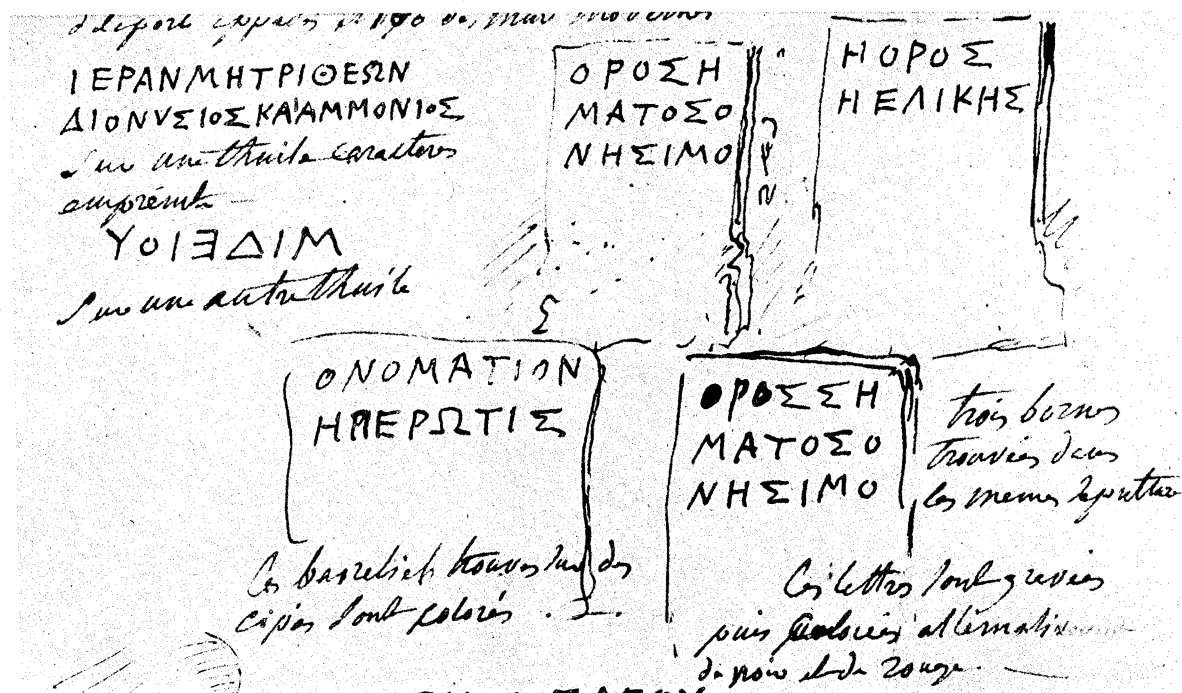 ΙΕΡΑΝΜΗΤΡΙΘΕΩΝ
ΔΙΟΝΥΣΙΟΣΚΑΙΑΜΜΟΝΙΟΣ
Sur une thuile caracteres
empreint
ΥΟΙƎΔΙΜ
Sur une autre thuile
ΟΡΟΣΗ
ΜΑΤΟΣΟ
ΝΗΣΙΜΟ
ΗΟΡΟΣ
ΗΕΛΙΚΗΣ
Σ
ΟΝΟΜΑΤΙΩΝ
ΗΠΕΡΩΤΙΣ
ΟΡΟΣΣΗ
ΜΑΤΟΣΟ
ΝΗΣΙΜΟ
trois bornes
trouvées dans
les memes
Ces basreliefs trouvés sur des
cipes sont colorés.
Ces lettres sont gravées
puis colories
de noir et de rouge.